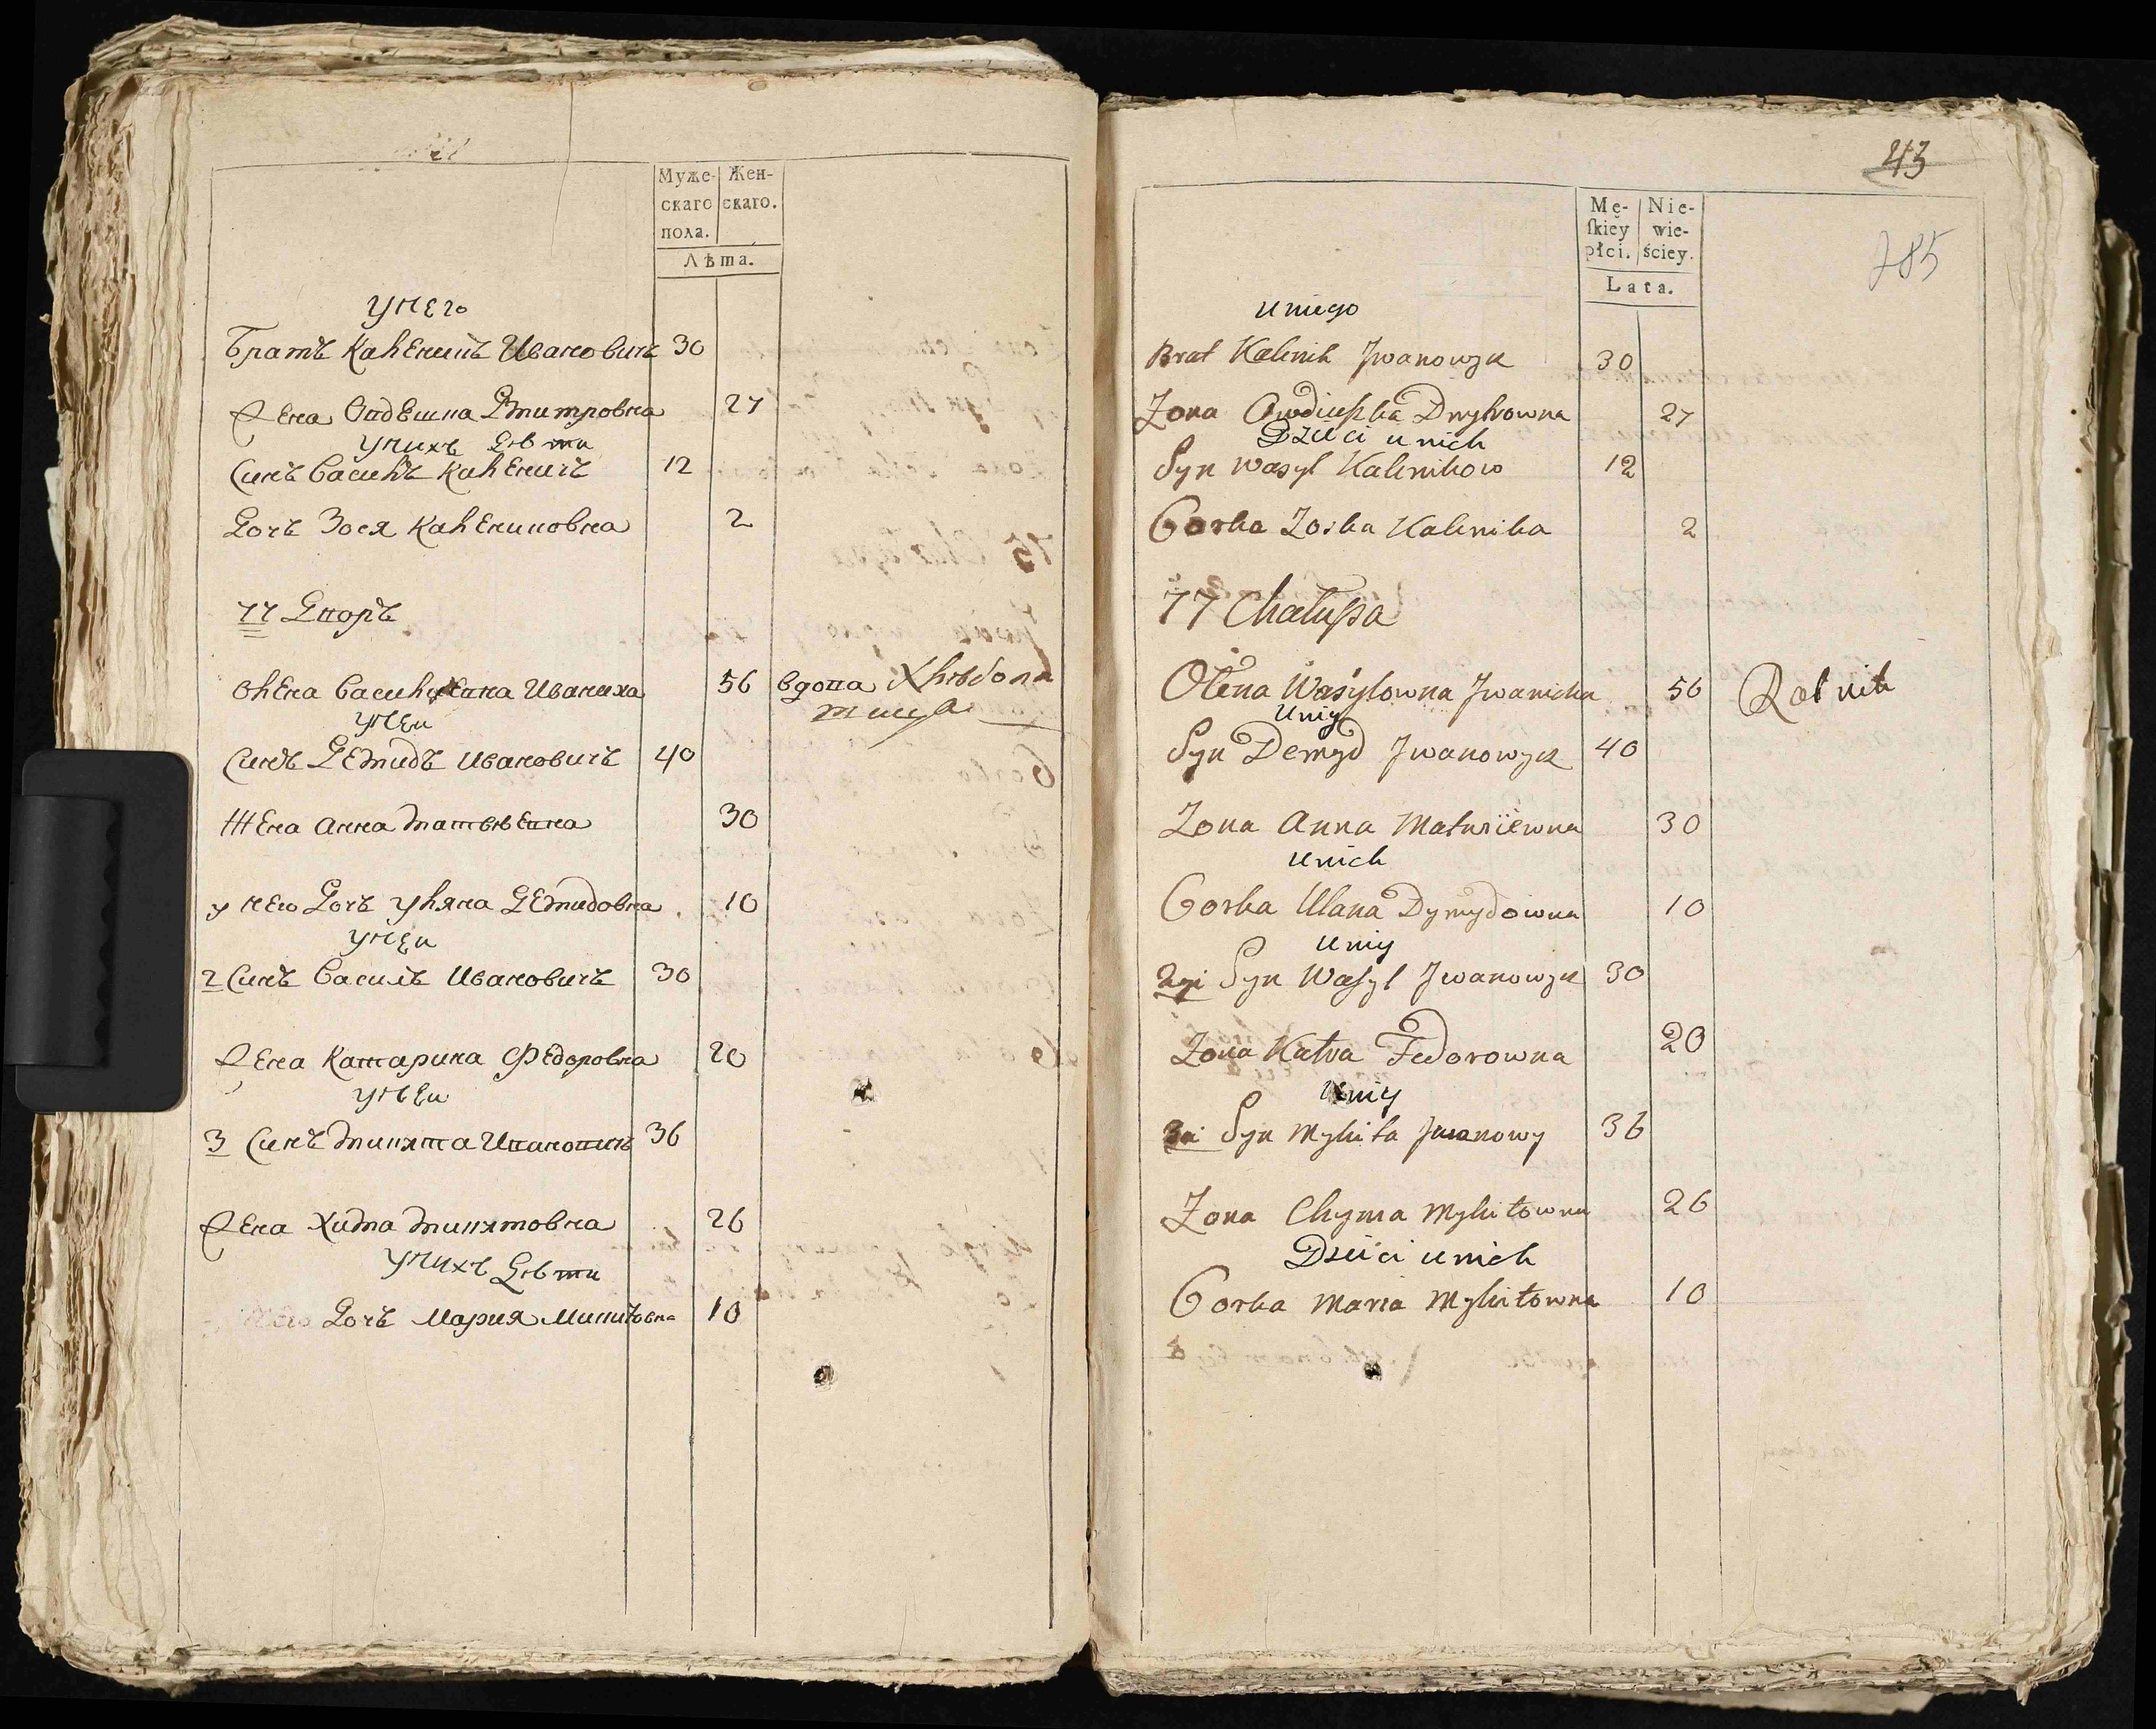 Муже- Жен-
скаго скаго.
пола.
Лѣта.
у него
Братъ Каленикъ Ивановичъ 30
Жена Овдешка Дмитровна 27
у нихъ дѣти
Синъ Василъ Каленичъ 12
Дочъ Зося Калениковна 2
77 Дворъ
Олена Васильевна Иваниха 56 вдова Хлѣбопа
шица
у неи
Синъ Демидъ Ивановичъ 40
Жена Анна Матвѣевна 30
у нею Дочъ Уляна Демидовна 10
у неи
2 Синъ Василь Ивановичъ 30
Жена Катарина Федоровна 20
у неи
3 Синъ Микита Ивановичъ 36
Жена Хима Микитовна 26
у нихъ Дѣти
Дочъ Мария Микитовна 10
43
785
Mę- Nie-
ſkiey wie-
płci. ściey.
Lata.
u niego
Brat Kalenik Jwanowyk 30
Zona Owdiuszka Dmytrowna 27
Dzieci u nich
Syn Wasyl Kalenikow 12
Corka Zoska Kalenika 2
77 Chałupa
Olena Wasylowna Jwanicha 56 Rolnik
U niy
Syn Demyd Jwanowyk 40
Zona Anna Matwiiewna 30
U nich
Corka Ulana Dymydowna 10
U niy
2gi Syn Wasyl Jwanowyk 30
Zona Katra Fedorowna 20
U niy
3ci Syn Mykita Jwanowy 36
Zona Chyma Mykitowna 26
Dzieci u nich
Corka Maria Mykitowna 10